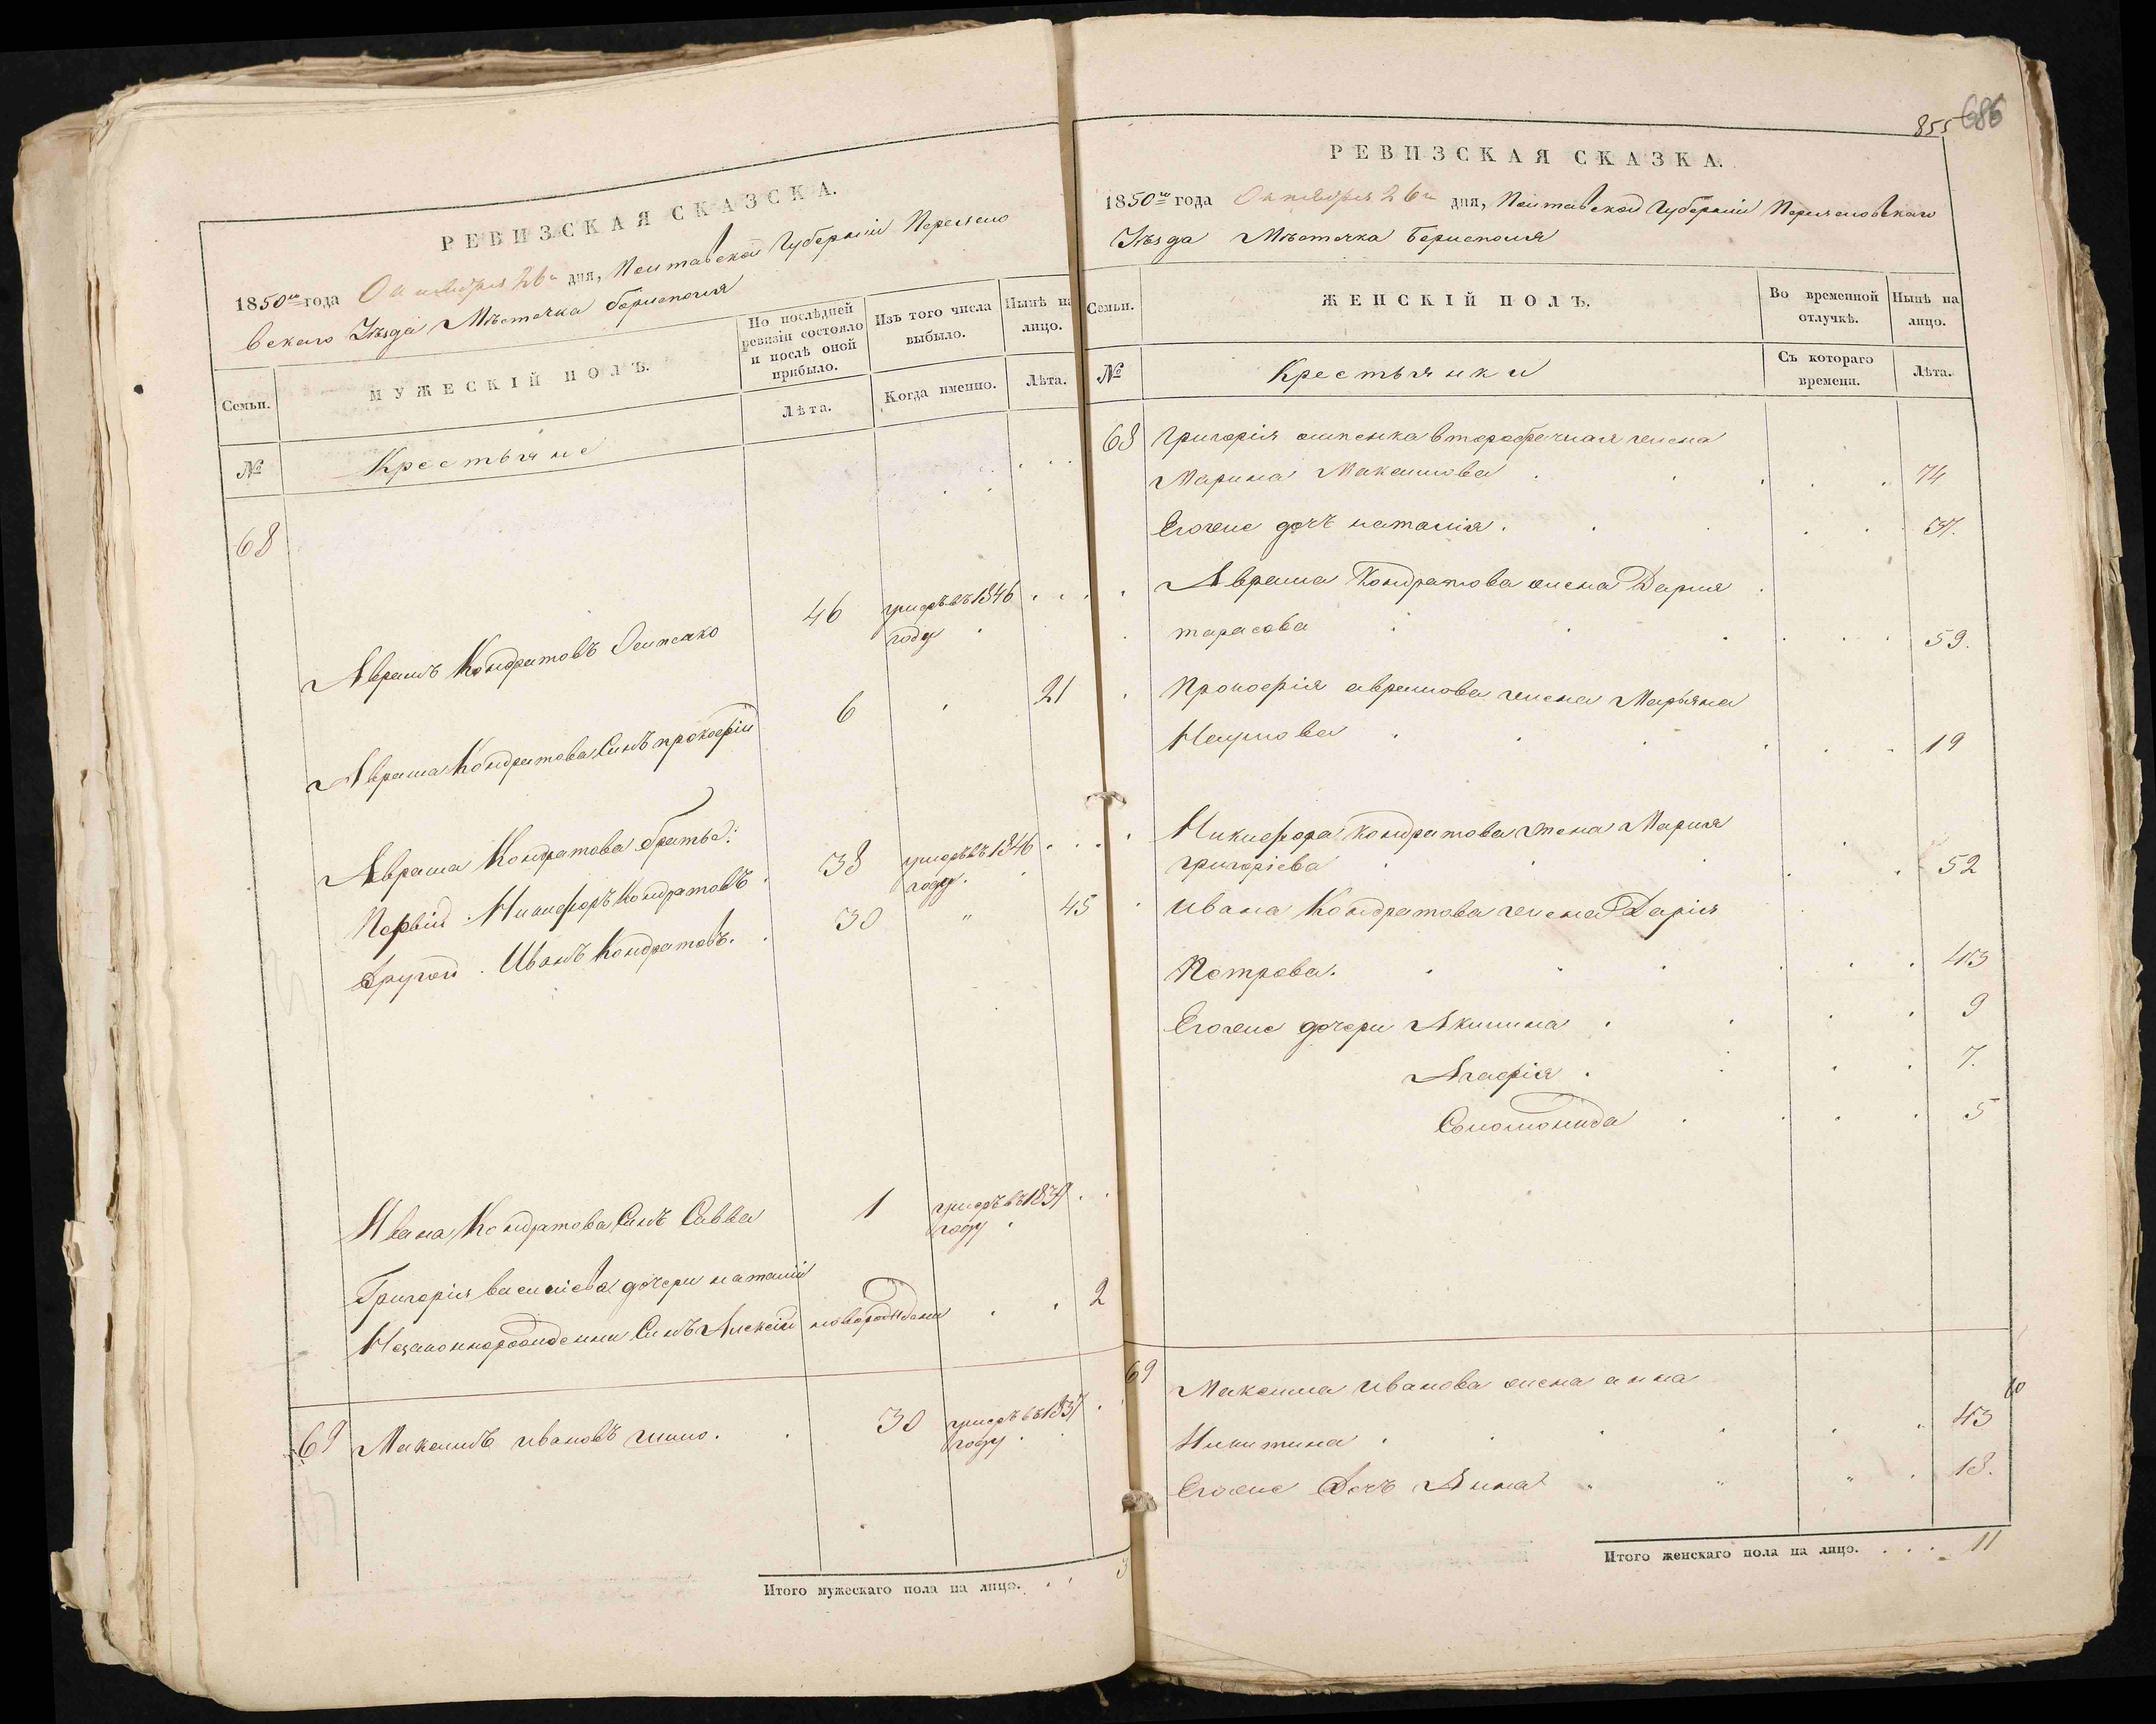 РЕВИЗСКАЯ СКАЗСКА.
1850го года Октября 26го дня, Полтавской Губерніи Переясло
вскаго Уѣзда Мѣстечка Борисполя
Семьи.
МУЖЕСКІЙ ПОЛЪ.
По послѣдней ревизіи состояло и послѣ оной прибыло.
Изъ того числа выбыло.
Нынѣ на лицо.
№
Крестьяне
Лѣта.
Когда именно.
Лѣта.
68
Аврамъ Кондратовъ Осипенко 46 умеръ въ 1846
году
Аврама Кондратова Синъ прокофій 6 21
Аврама Кондратова братья:
Первій Никифоръ Кондратовъ 38 умеръ въ 1846
году.
Другой Иванъ Кондратовъ. 30 " 45
Ивана Кондратова Синъ Савва 1 умеръ въ 1839
году
Григорія василіева дочери наталіи
Незаконнорожденни Синъ Алексій новорожденн 2
69 Максимъ ивановъ 30 умеръ въ 1837
году
Итого мужескаго пола на лицо. . . 3
855 686
РЕВИЗСКАЯ СКАЗКА.
1850го года Октября 26го дня, Полтавской Губерніи Переясловскаго
Уѣзда Мѣстечка Борисполя
Семьи.
ЖЕНСКІЙ ПОЛЪ.
Во временной отлучкѣ.
Нынѣ на лицо.
№
Крестьянки
Съ котораго времени.
Лѣта.
68 Григорія осипенка второбрачная жена
Марина Максимова 74
Егоже дочъ наталія. 37.
Аврама Кондратова жена Дария
тарасова 59.
Прокофія аврамова жена Марьяна
Наумова 19
Никифора Кондратова жена Мария
григоріева 52
ивана Кондратова жена Дарія
Петрова. 43
Егоже дочери Акилина 9
Агафія 7.
Соломонида 5
69 Максима иванова жена анна
10
Никитина 43
Егоже Дочъ Анна " " " 18.
Итого женскаго пола на лицо. . . . 11